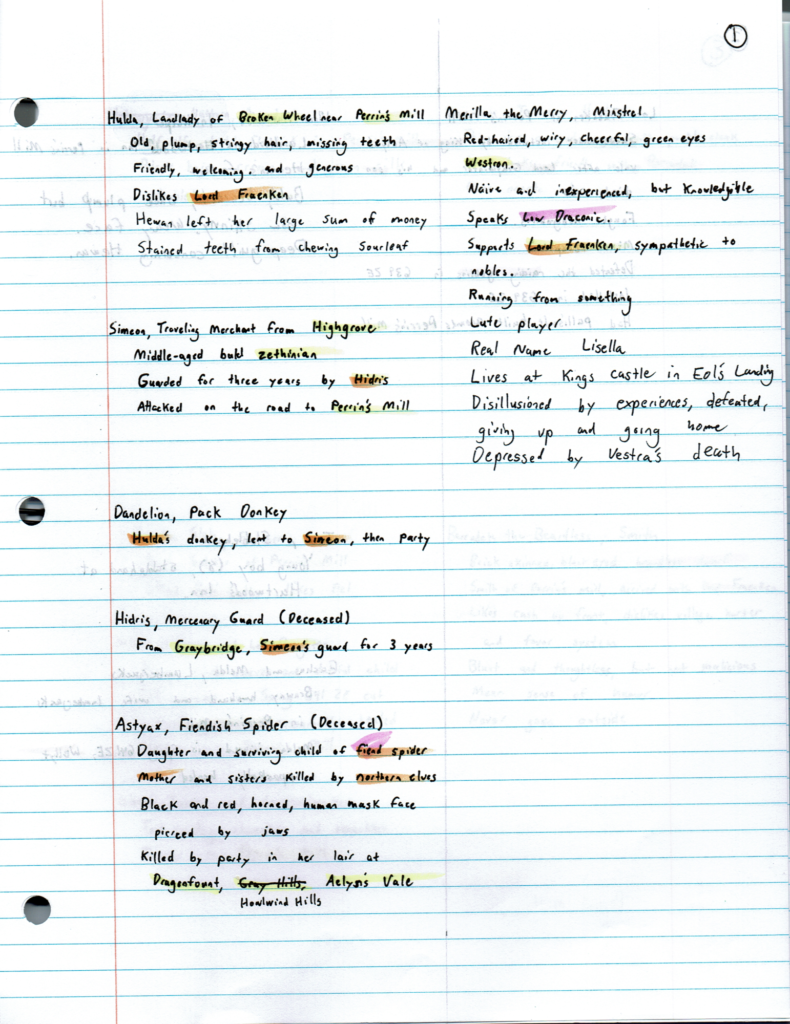 1
Hulda, Landlady of Broken Wheel near Perrin's Mill
Old, plump, stringy hair, missing teeth
Friendly, welcoming, and generous
Dislikes Lord Fraenken
Hewan left her large sum of money
Stained teeth from chewing sourleaf
Simeon, Traveling Merchant from Highgrove
Middle-aged bald zethinian
Guarded for three years by Hidris
Attacked on the road to Perrin's Mill
Dandelion, Pack Donkey
Hulda's donkey, lent to Simeon, then party
Hidris, Mercenary Guard (Deceased)
From Graybridge, Simeon's guard for 3 years
Astyax, Fiendish Spider (Deceased)
Daughter and surviving child of fiend spider
Mother and sisters killed by northern elves
Black and red, horned, human mask face
pierced by jaws
Killed by party in her lair at
Dragonfount, Gray Hills, Aelysi's Vale
Howlwind Hills
Merilla the Merry, Minstrel
Red-haired, wiry, cheerful, green eyes
Westron.
Naive and inexperienced, but knowledgible
Speaks Low Draconic.
Supports Lord Fraenken, sympathetic to
nobles.
Running from something
Lute player
Real Name Lisella
Lives at Kings Castle in Eol's Landing
Disillusioned by experiences, defeated,
giving up and going home
Depressed by Vestra's death